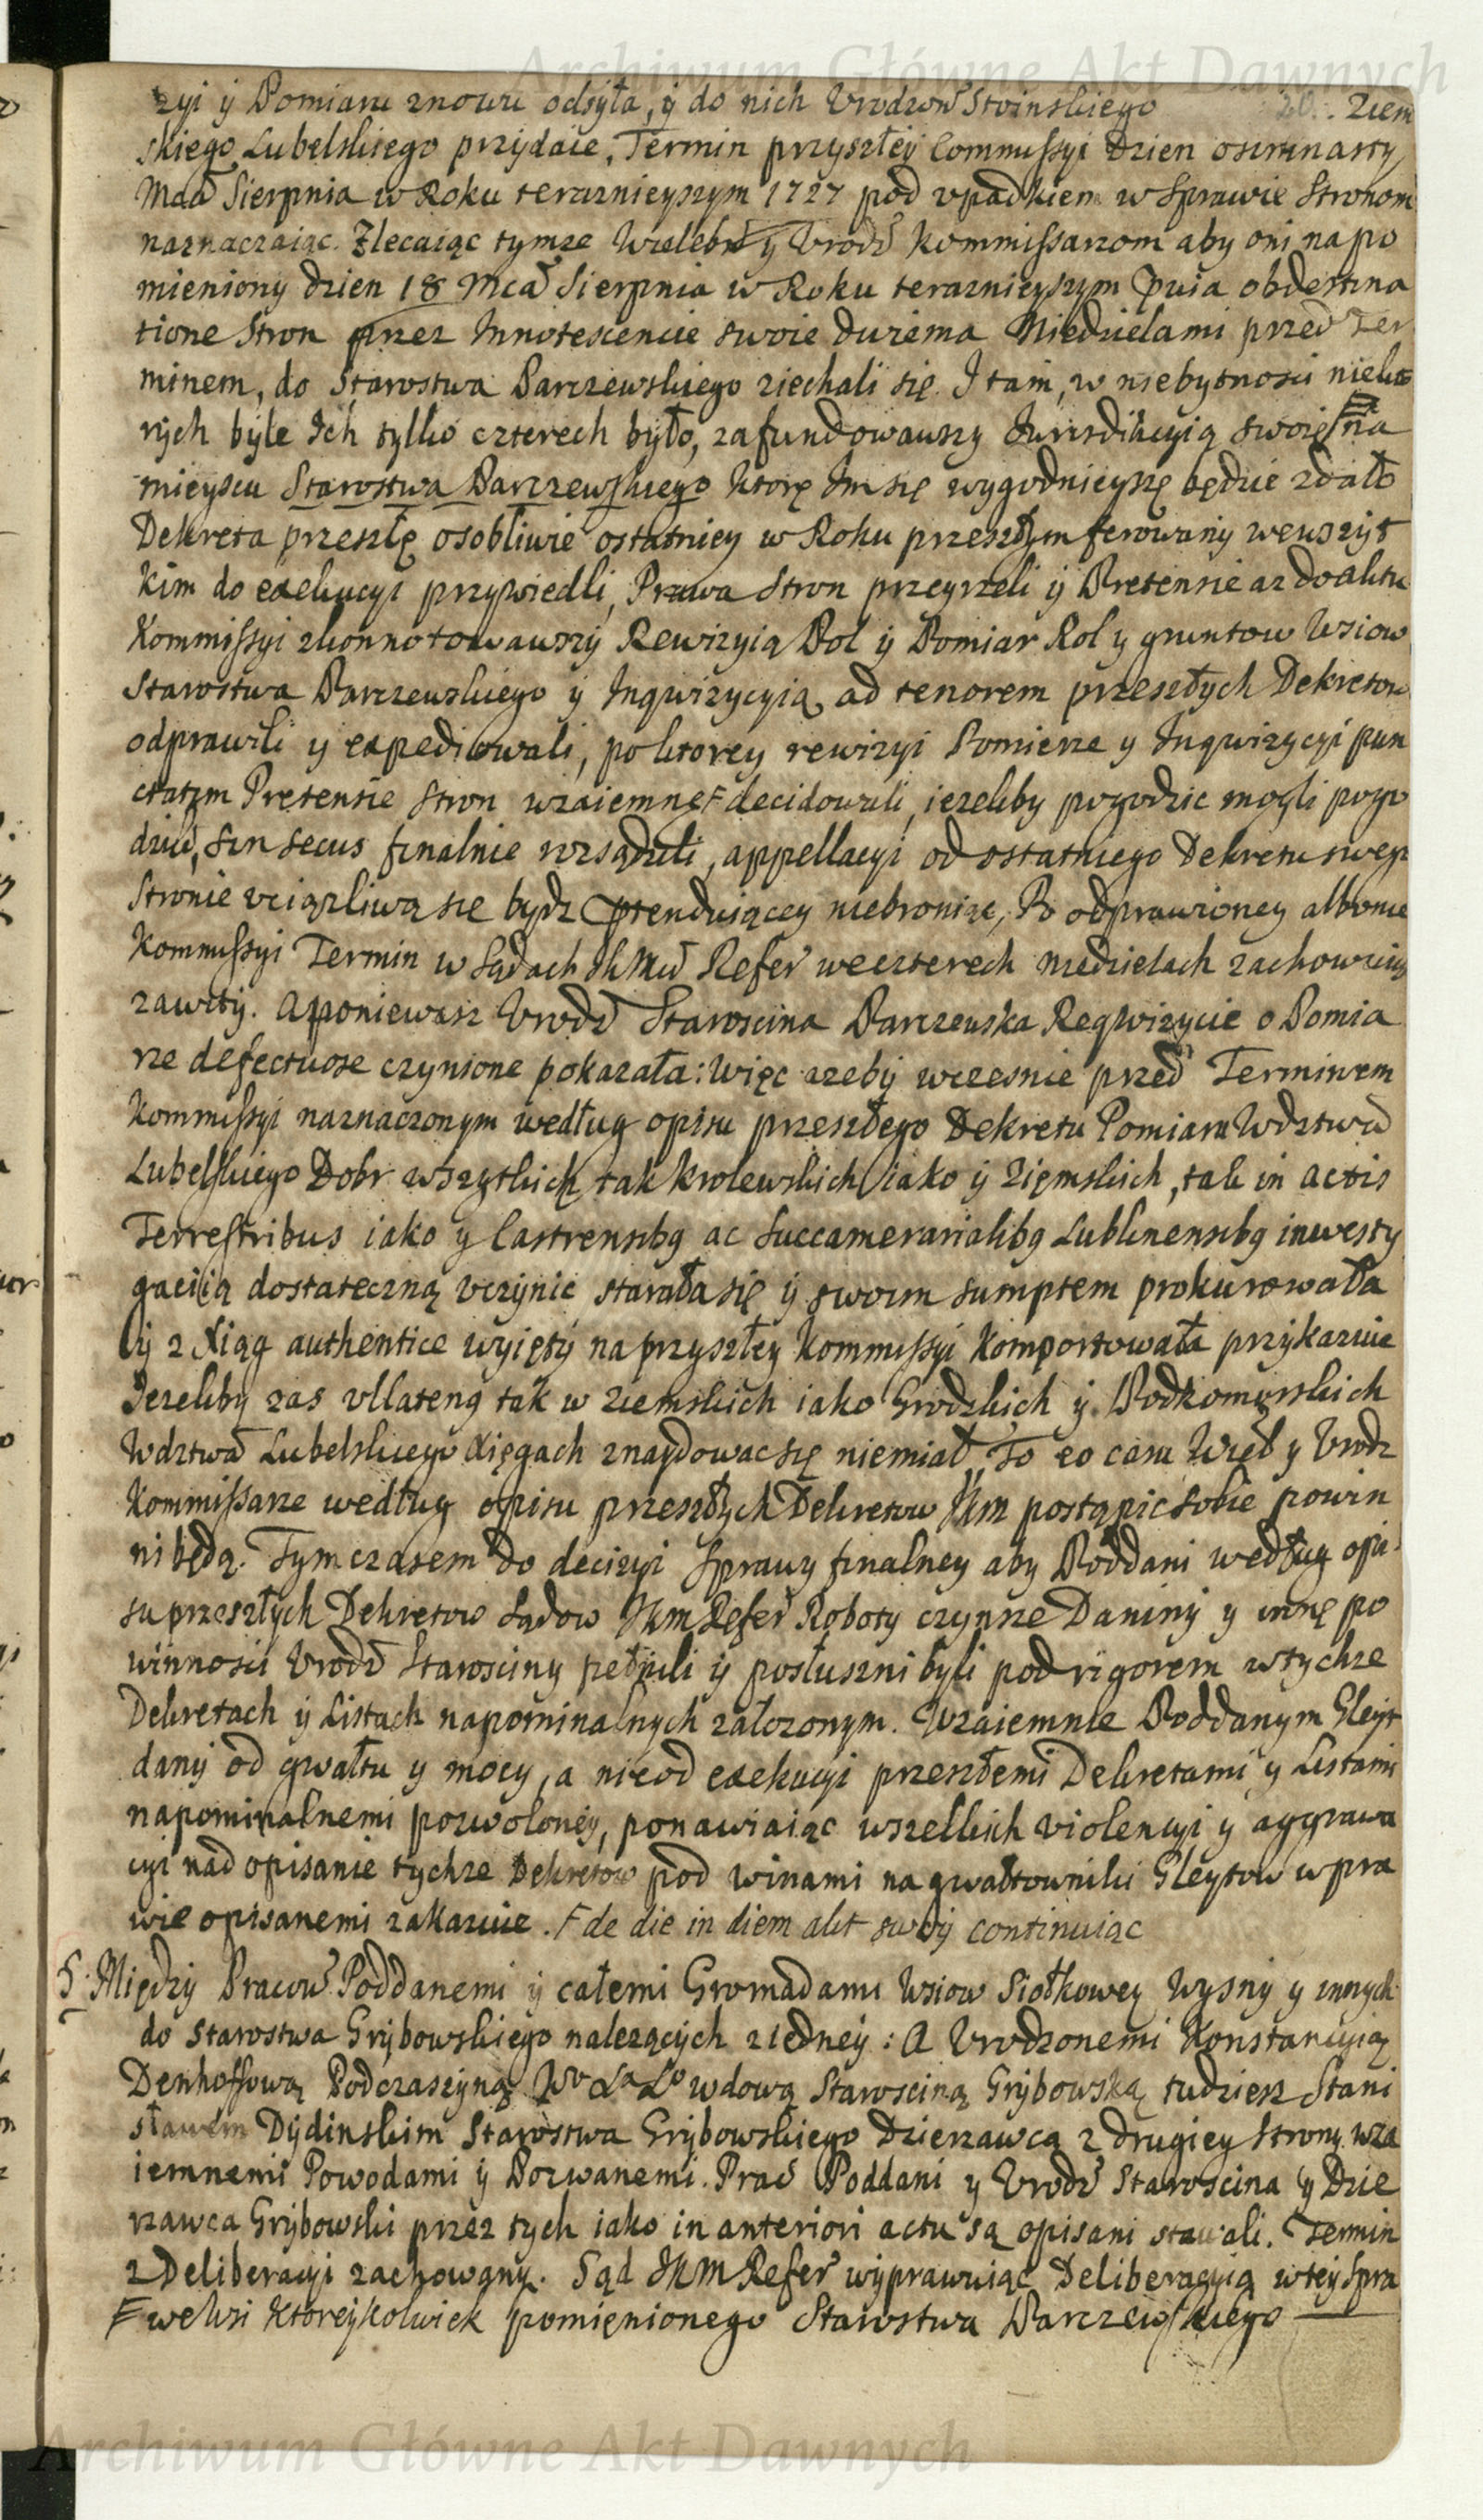 Archiwum Główne Akt Dawnych
zyi ÿ Pomiaru znowu odsyła, ÿ do nich Vrodzow Stoinskiego Ziem
skiego Lubelskiego przÿdaie, Termin przyszłeÿ Commissyi Dzien osimnasty
Mca Sierpnia w Roku teraznieyszym 1727 pod vpadkiem w Sprawie Stronom
naznaczaiąc. Zlecaiąc tymze Wielebn y Vrodz Kommissarzom aby oni na po
mieniony dzien 18 Mca Sierpnia w Roku teraznieyszym
tione Stron przez Innotescencie swoie dwiema Niedzielami przed Ter
minem, do Starostwa Parczewskiego ziechali się. I tam, w niebytnosci niekto
rych byle Ich tylko czterech było, zafundowawszy Jurisdikcyią swoię na
mieyscu Starostwa Parczewskiego ktorę Im się wygodnieyszę będzie zdało
Dekreta przeszłę osobliwie ostatniey w Roku przeszłym ferowany wewszyt
kim do exekucyi przywiedli, Prawa Stron przeyrzeli ÿ Pretensie az do aktu
Kommissyi zkonnotowawszÿ Rewizyią Pol ÿ Pomiar Rol y gruntow Wsiow
Starostwa Parczewskiego ÿ Inqwizycyią ad tenorem przeszłych Dekretow
odprawili y expediowali, po ktorey rewizyi Pomierze y Inqwizycyi pun
ctatim Pretensie Stron wzaiemnę decidowali, iezeliby pogodzic mogli pogo
dzili, sin secus finalnie rozsądzili, appellacyi od ostatniego Dekretu swego
Stronie vciązliwą się bydz prenduiącey niebroniąc, Po odprawioney albowie
Kommissyi Termin w Sądach JKMci Refer weczterech niedzielach zachowuiąc
zawity. A poniewasz Vrodz Staroscina Parczewska Reqwizycie o Pomia
rze defectuose czynione pokazała: Więc azebÿ wczesnie przed Terminem
Kommissyi naznaczonym według opisu przeszłego Dekretu Pomiaru Wdztwa
Lubelskiego Dobr wszytkich tak krolewskich iako ÿ Ziemskich, tak in actis
Terrestribus iako y Castrensibg ac Succamerarialibg Lublinensibg inwesty
gacią dostateczną vczÿnic starała się ÿ swoim sumptem prokurowała
ÿ z Xiąg authentice wyiętÿ na przyszłey Kommissyi Komportowała przÿkazuie
Iezeliby zas vllateng tak w Ziemskich iako Grodzkich ÿ Podkomorskich
Wdztwa Lubelskiego Xięgach znaydowac się niemiał, To eo casu Wieb y Vrodz
Kommissarze według opisu przeszłych Dekretow JKM postąpic sobie powin
ni będą. Tym czasem do decizyi Sprawy finalney aby Poddani według opi
su przeszłych Dekretow Sądow JKM Refer Roboty czynsze Daninÿ y innę po
winnosci Vrodz Starosciny pełnili ÿ posłuszni byli pod rigorem wtychze
Dekretach ÿ Listach napominalnych załozonym. Wzaiemnie Poddanym Gleyt
danÿ od gwałtu y mocy, a nie od exekucyi przeszłemi Dekretami y Listami
napominalnemi pozwoloneÿ, ponawiaiąc wszelkich violencyi y aggrawa
cyi nad opisanie tychze Dekretow pod winami na gwałtowniki Gleytow w pra
wie opisanemi zakazuie. F de die in diem akt swoÿ continuiąc
5. Między Pracow Poddanemi ÿ całemi Gromadami Wsiow Siołkowey Wysnÿ y innych
do Starostwa Grÿbowskiego nalezących z iedneÿ: A Vrodzonemi Konstancyią
Denhoffową Podczaszyną Wo Xa Lo wdową Starosciną Grÿbowską tudziesz Stani
sławem Dÿdinskim Starostwa Grÿbowskiego Dzierzawcą z drugiey Strony wza
iemnemi Powodami ÿ Pozwanemi. Prac Poddani y Vrodz Staroscina y Dzie
rzawca Grÿbowski przez tych iako in anteriori actu są opisani stawali. Termin
z Deliberacyi zachowany. Sąd JKM Refer wÿprawuiąc Deliberacyią wtey Spra
F we Wsi Ktoreÿkolwiek pomięnionego Starostwa Parczewskiego
Archiwum Główne Akt Dawnych